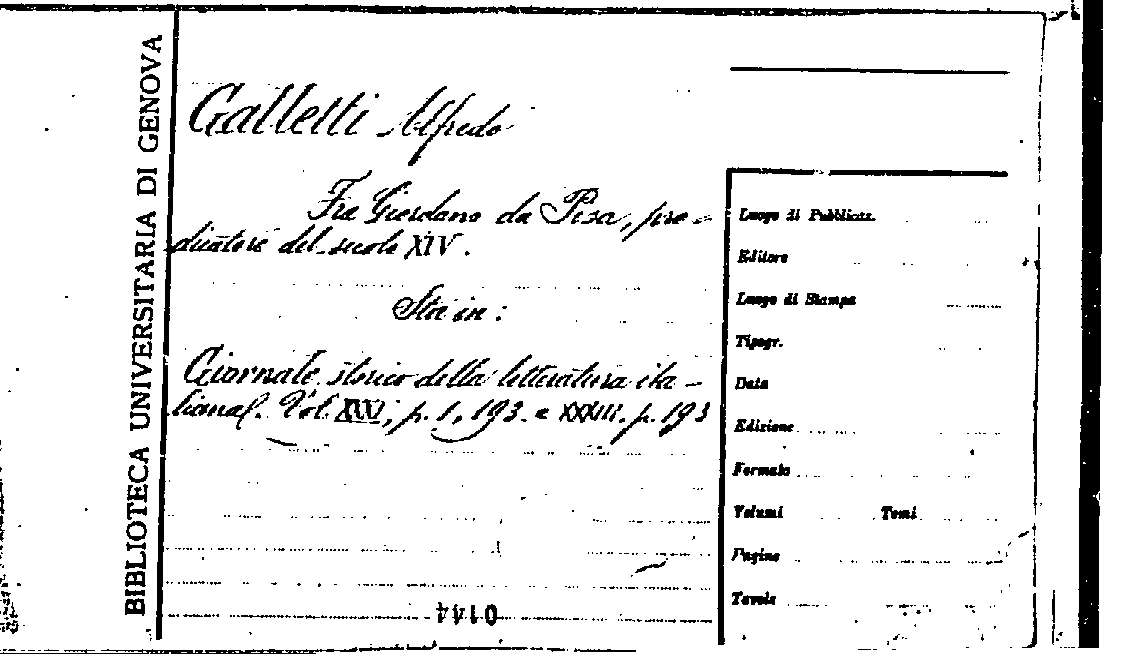 BIBLIOTECA UNIVERSITARIA DI GENOVA
Galletti Alfredo
Fra Giordano da Pisa, pre-
dicatore del secolo XIV.
Sta in:
Giornale storico della letteratura ita-
liana. Vol. , p. 1, 193. e XXXIII, p. 193
Luogo di Pubblicaz.
Editore
Luogo di Stampa
Tipogr.
Data
Edizione
Formato
Volumi Tomi
Pagine
Tavole
0144